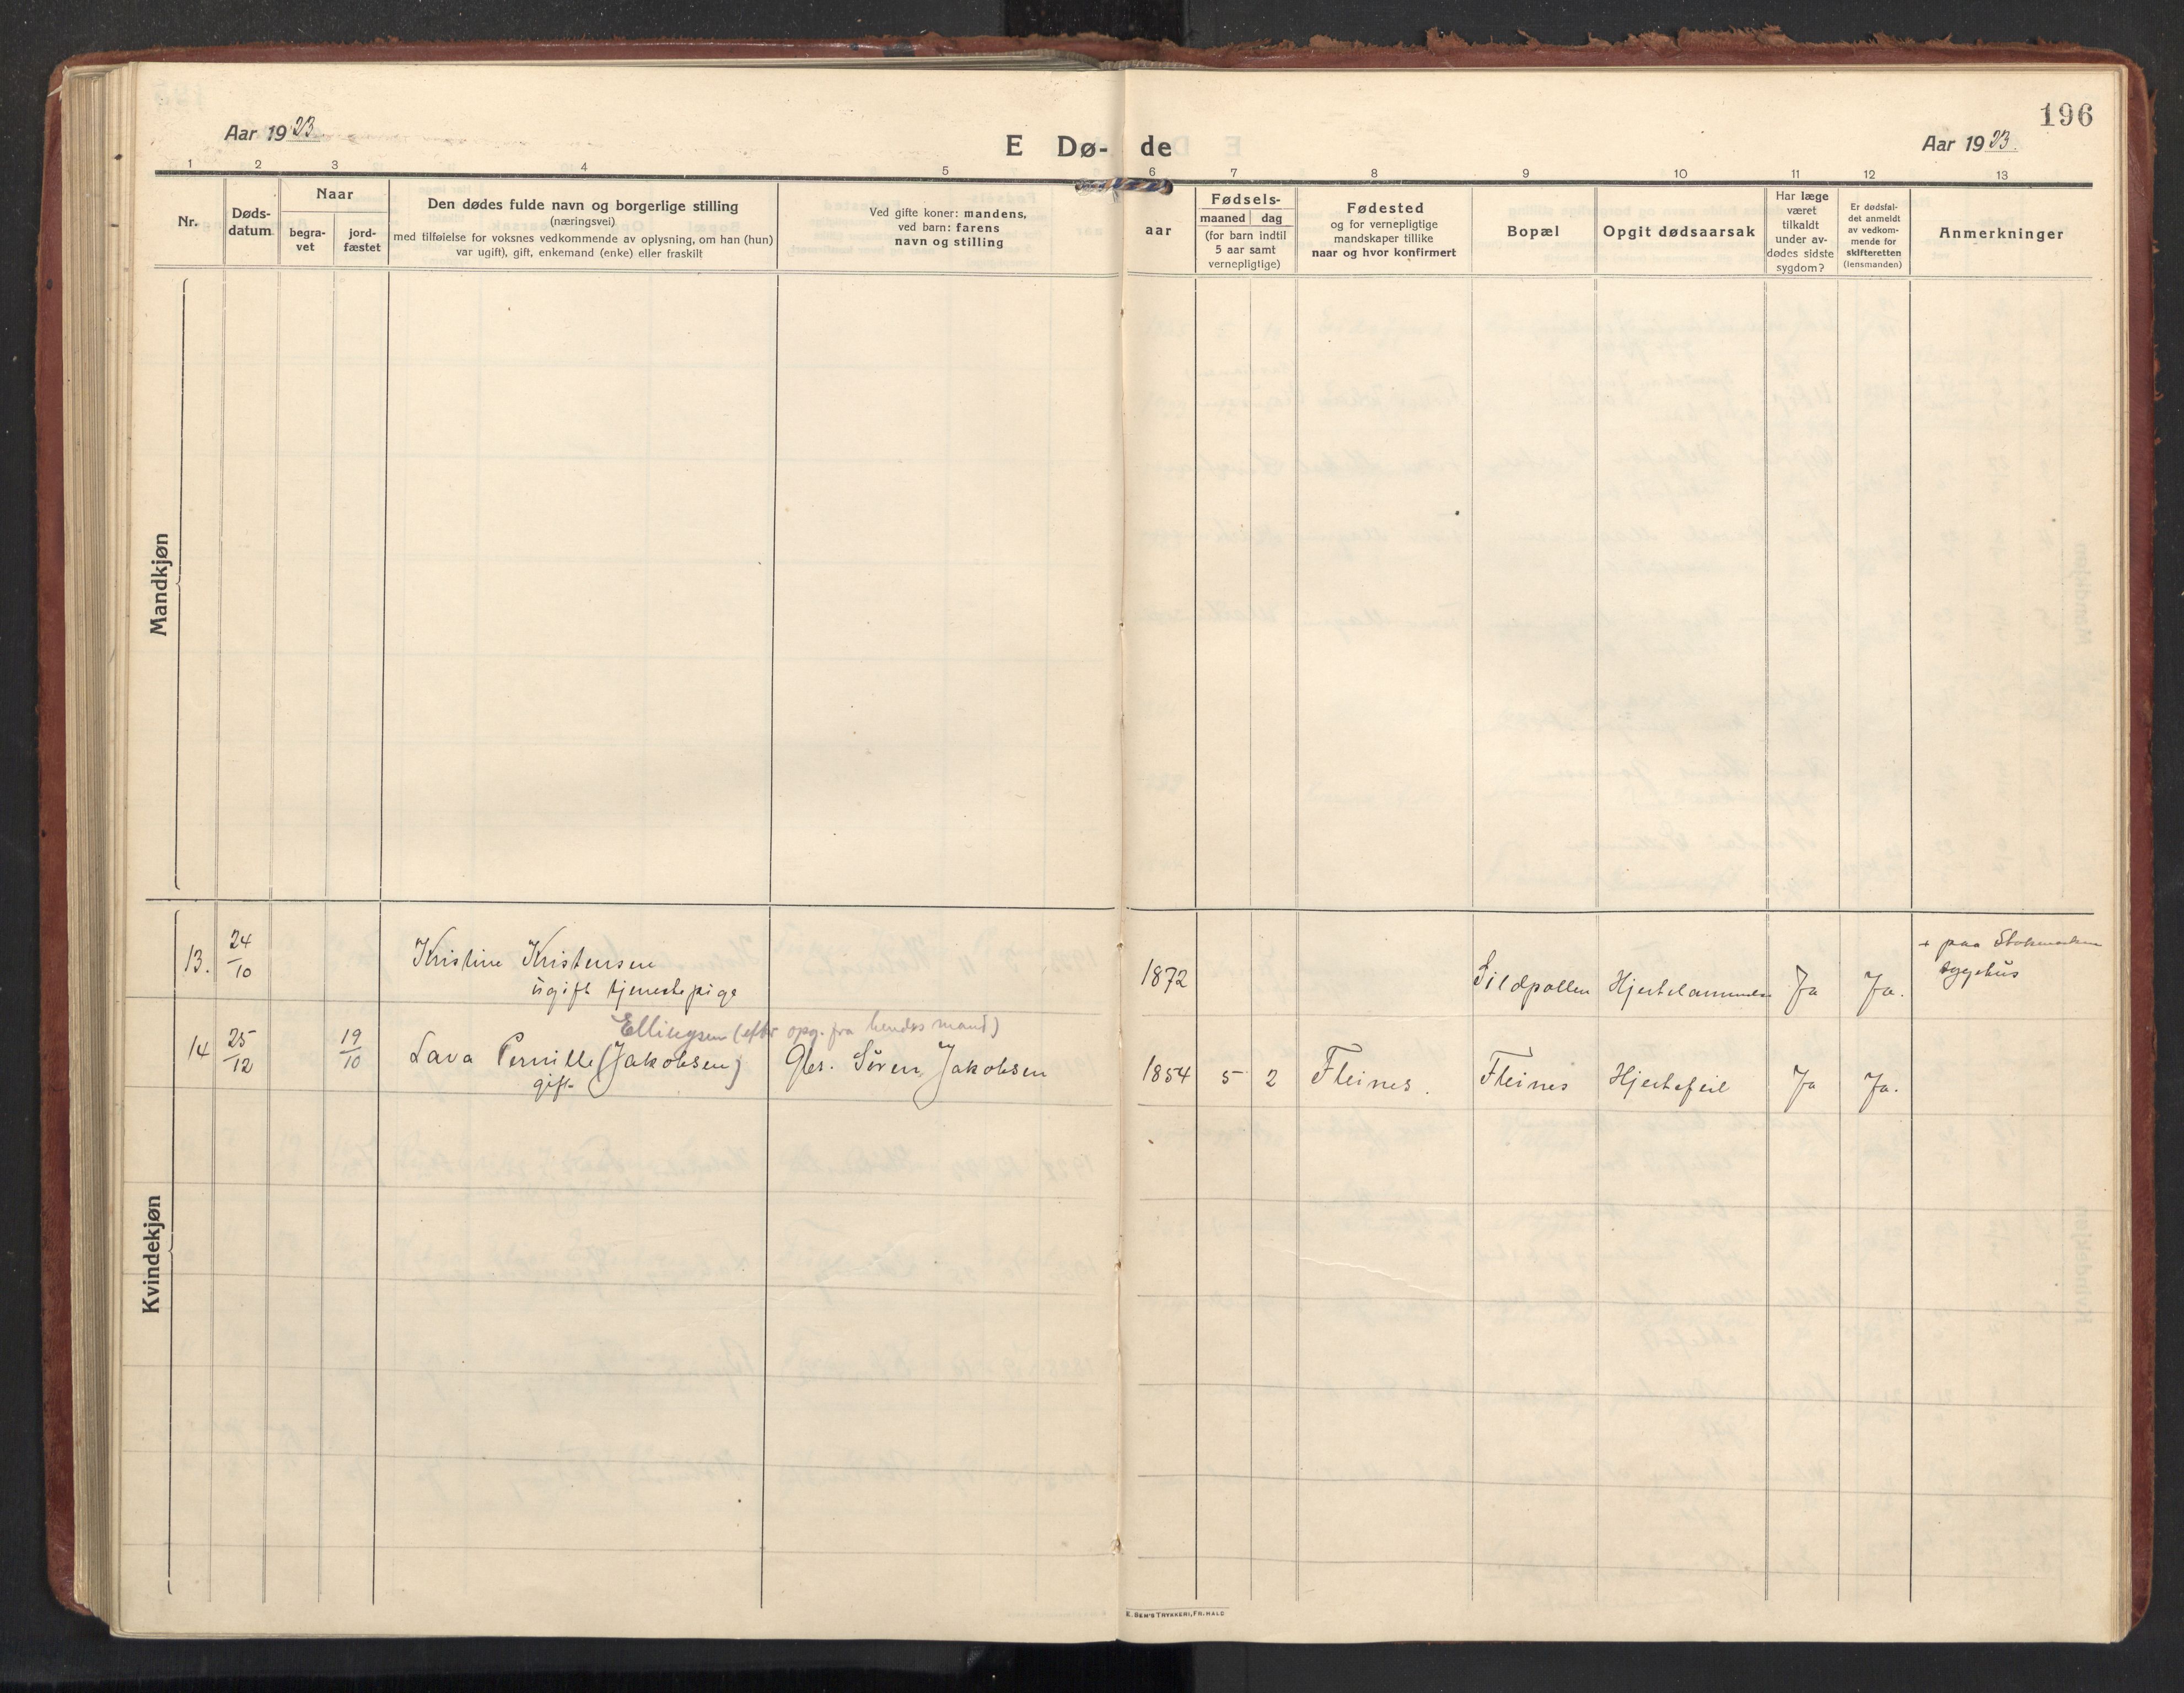 196
Aar 1923.
E Dø-de
Aar 1923.
1 2 3 4 5 6 7 8 9 10 11 12 13
Nr.
Døds-
datum
Naar
begra-
vet
jord-
fæstet
Den dødes fulde navn og borgerlige stilling
(næringsvei)
med tilføielse for voksnes vedkommende av oplysning, om han (hun)
var ugift), gift, enkemand (enke) eller fraskilt
Ved gifte koner: mandens,
ved barn: farens
navn og stilling
aar
Fødsels-
maaned dag
(for barn indtil
5 aar samt
vernepligtige)
Fødested
og for vernepligtige
mandskaper tillike
naar og hvor konfirmert
Bopæl
Opgit dødsaarsak
Har læge
været
tilkaldt
under av-
dødes sidste
sygdom?
Er dødsfal-
det anmeldt
av vedkom-
mende for
skifteretten
(lensmanden)
Anmerkninger
Mandkjøn
Kvindekjøn
13. 24/10 Kristine Kristensen 1872 Sildpollen Hjertelammelse Ja Ja.
ugift tjenestepige
+ paa Stokmarknes
sygehus
Ellingsen (efter opg. fra hendes mand)
14 25/12 19/10 Lava Pernille (Jakobsen) Gbr. Søren Jakobsen 1854 5 2 Fleines. Fleines Hjertefeil Ja Ja.
gift
E. SEM'S TRYKKERI, FR.HALD